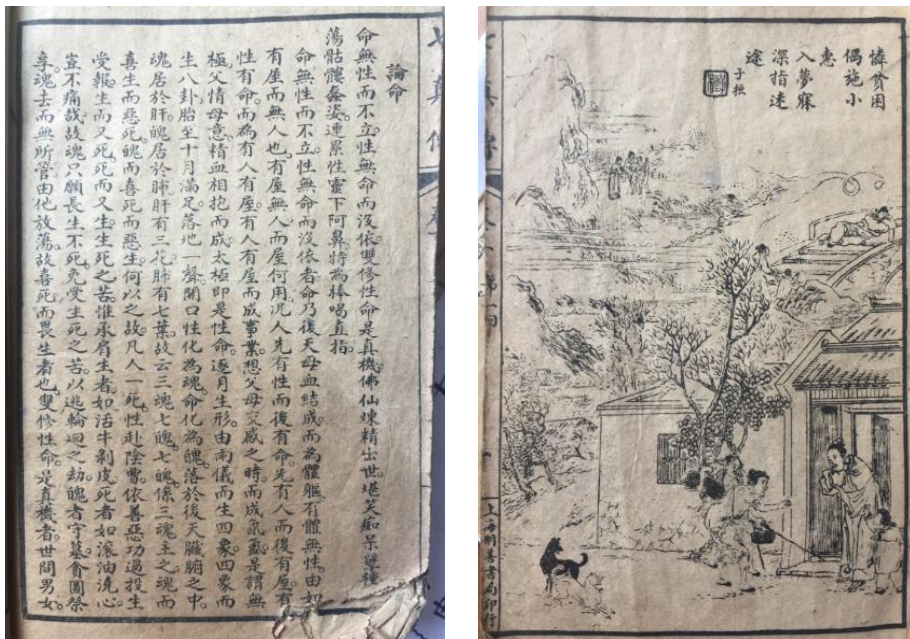 論命
命無性而不立。性無命而沒依。雙修性命是真機。佛仙煉精出世。堪笑痴呆孽種。
蕩骷髏姿。連累性靈下阿鼻。特為棒喝直指。
命無性而不立。性無命而沒依者。命乃後天母血結成。而為體軀。有體無性。由如
有屋而無人也。有屋無人。而屋何用。況人先有性而後有命。先有人而後有屋。有
性有命。而為有人有屋。有人有屋而成事業。想父母交感之時。而成是謂無
極。父情母意。精血相抱而成太極。即是性命。逐月生形。由兩儀而生四象。四象而
生八卦。胎至十月滿足。落地一聲。開口性化為魂。命化為魄。落於後天臟腑之中。
魂居於肝。魄居於肺。肝有三花。肺有七葉。故云三魂七魄。七魄係三魂主之。魂而
喜生而惡死。魄而喜死而惡生。何以之故。凡人一死。性赴陰曹。依善惡功過投生
受報。生而又死。死而又生。生死之苦。惟承肩。生者如活牛剝皮。死者如滾油澆心。
豈不痛哉。故魂只願長生不死。免受生死之苦。以逃輪迴之劫。魄者守墓。貪圖祭
享。魂去而無所管。由他放蕩。故喜死而畏生者也。雙修性命是真機者。世間男女。
憐貧困
偶施小
惠
入夢寐
深指迷
途
子桓
第一回
上海明善書局印行